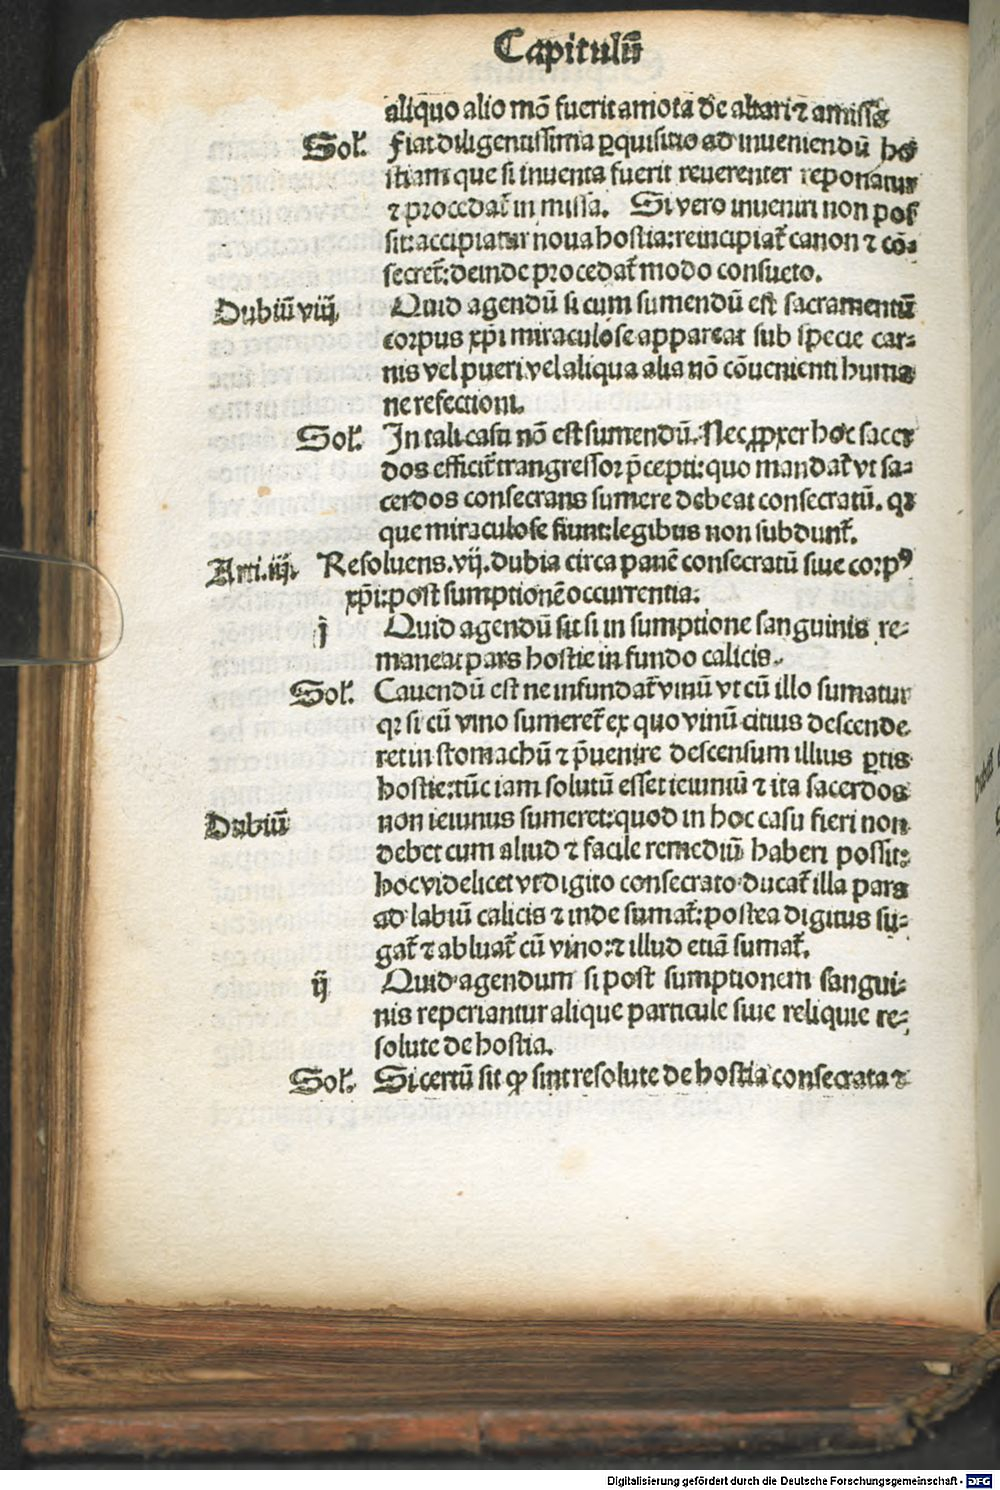 Capitulū
aliquo alio mō fuerit amota de altari ⁊ amissa
Sol'. Fiat diligentissima ꝑquisitio ad inueniendū ho
stiam que si inuenta fuerit reuerenter reponatur
⁊ procedat᷑ in missa. Si vero inueniri non pos
sit: accipiatur noua hostia: reincipiat᷑ canon ⁊ cō-
secret᷑: deinde procedat᷑ modo consueto.
Dubiū viij. Quid agendū si cum sumendū est sacramentū
corpus xp̄i miraculose appareat sub specie car-
nis vel pueri, vel aliqua alia nō cōuenienti huma
ne refectioni.
Sol'. In tali casu nō est sumendū. Nec ꝓpter hoc sacer
dos efficit᷑ trangressor p̄cepti: quo mandat᷑ vt sa-
cerdos consecrans sumere debeat consecratū. qꝛ
que miraculose fiunt: legibus non subdunt᷑.
Arti. iiij. Resoluens. vij. dubia circa panē consecratū siue corpꝰ
xp̄i: post sumptionē occurrentia.
i Quid agendū sit si in sumptione sanguinis re-
maneat pars hostie in fundo calicis.
Sol'. Cauendū est ne infundat᷑ vinū vt cū illo sumatur
qꝛ si cū vino sumeret᷑ ex quo vinū citius descende
ret in stomachū ⁊ p̄uenire descensum illius ꝑtis
hostie: tūc iam solutū esset ieiuniū ⁊ ita sacerdos
Dubiū non ieiunus sumeret: quod in hoc casu fieri non
debet cum aliud ⁊ facile remediū haberi possit:
hoc videlicet vt digito consecrato ducat᷑ illa pars
ad labiū calicis ⁊ inde sumat᷑: postea digitus su-
gat᷑ ⁊ abluat᷑ cū vino: ⁊ illud etiā sumat᷑.
ij Quid agendum si post sumptionem sangui-
nis reperiantur alique particule siue reliquie re-
solute de hostia.
Sol'. Si certū sit ꝙ sint resolute de hostia consecrata ⁊
Digitalisierung gefördert durch die Deutsche Forschungsgemeinschaft - DFG